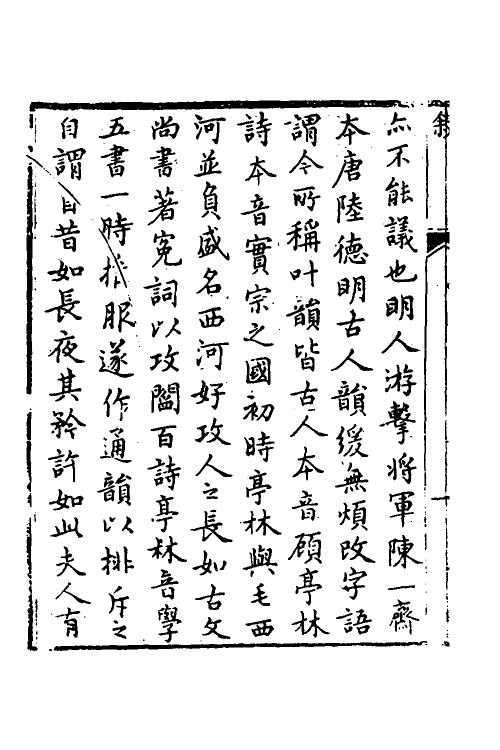 叙
一
亦不能議也明人游擊將軍陳一齋
本唐陸德明古人韻緩無煩改字語
謂今所稱叶韻皆古人本音顧亭林
詩本音實宗之國初時亭林與毛西
河並負盛名西河好攻人之長如古文
尚書著寃詞以攻閻百詩亭林音學
五書一時推服遂作通韻以排斥之
自謂自昔如長夜其矜許如此夫人有